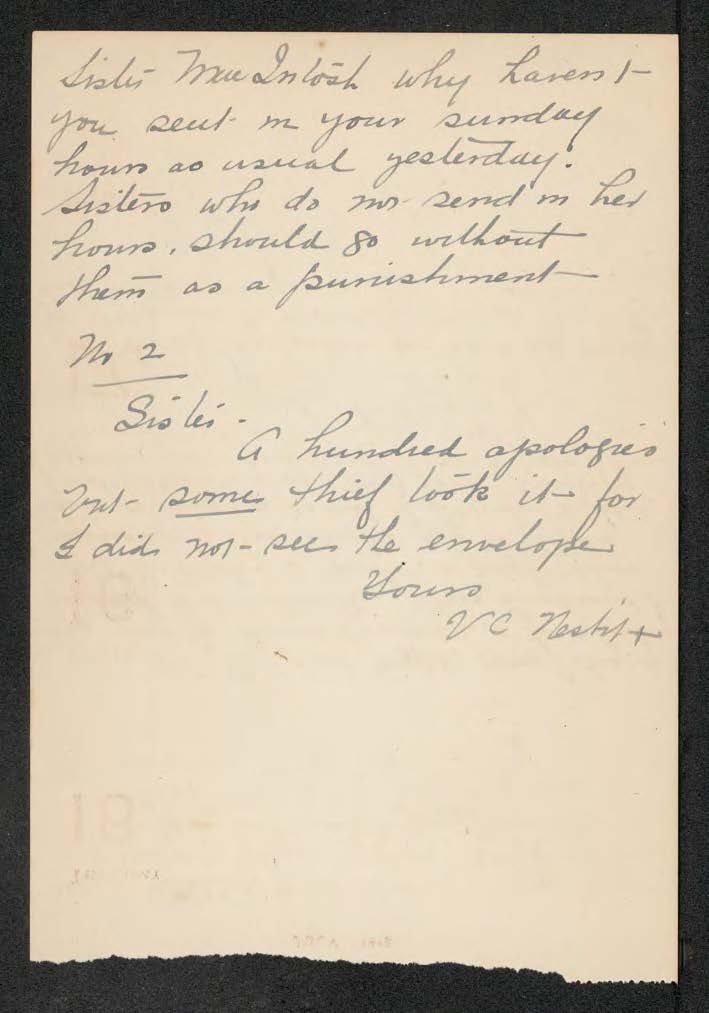 Sister MacIntosh why haven't
you sent in your sunday
hours as usual yesterday.
Sisters who do not send in her
hours, should go without
them as a punishment
No 2
Sister.
A hundred apologies
but some thief took it for
I did not see the envelope
Yours
V C Nesbitt